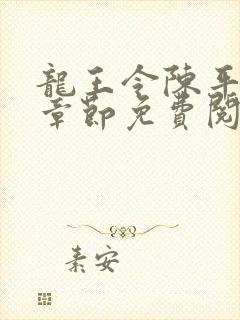 龍王令陳平
章節免費閱
素安